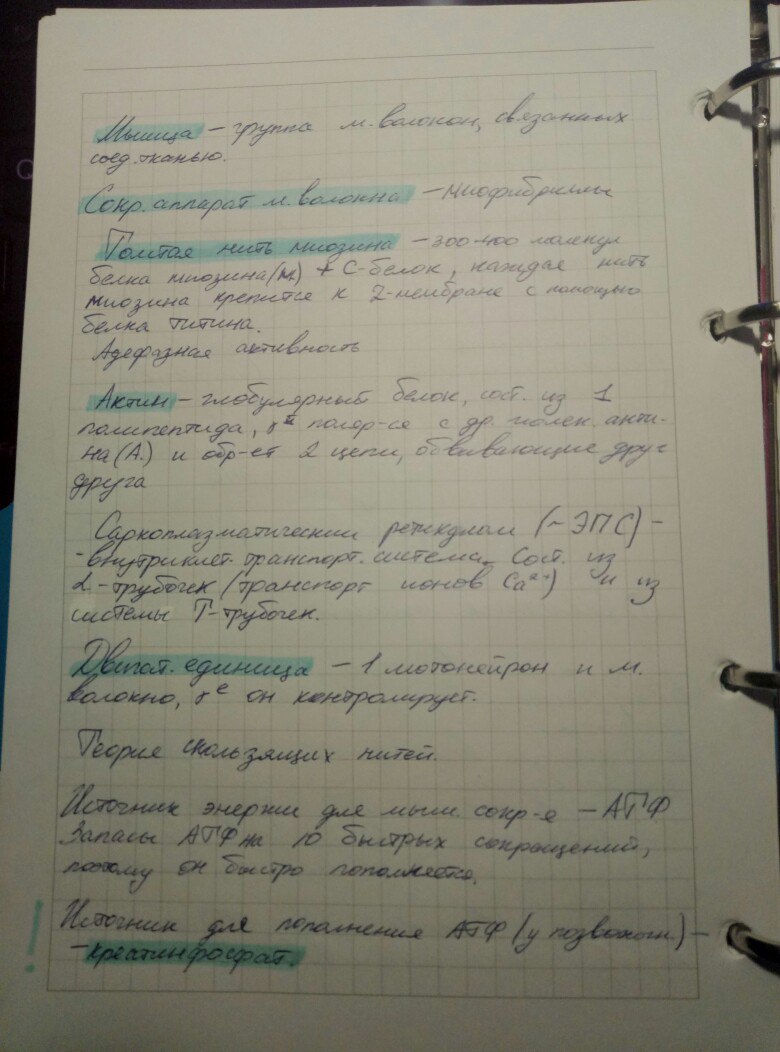 Мышца – группа м. волокон, связанных
соед. тканью.
Сокр. аппарат м. волокна – миофибриллы
Толстая нить миозина – 300-400 молекул
белка миозина (М) + С-белок, каждая нить
миозина крепится к Z-мембране с помощью
белка титина.
активность
Актин – глобулярный белок, сост. из 1
полипептида, полер-ся с др. молек. акти-
на (А.) и обр-ет 2 цепи, обвивающие друг
друга
Саркоплазматический ретикулом (~ ЭПС) –
- внутриклет. транспорт. система. Сост. из
L-трубочек (транспорт ионов Ca²⁺) и из
системы Т-трубочек.
Двигат. единица – 1 мотонейрон и м.
волокно, он контролирует.
Теория скользящих нитей.
Источник энергии для мыш. сокр-я – АТФ
Запасы АТФ на 10 быстрых сокращений,
поэтому он быстро пополняется.
! Источник для пополнения АТФ (у позвоночн) –
– креатинфосфат.